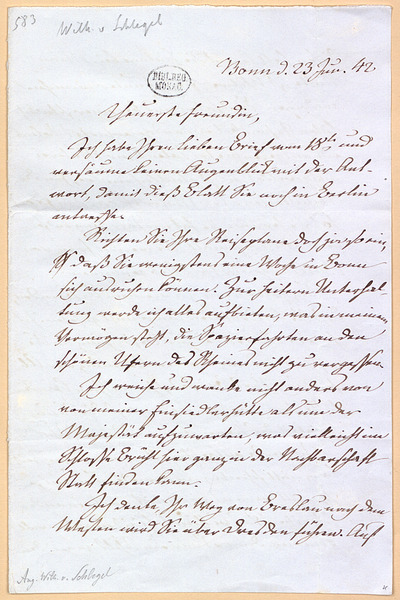 583
Wilh. v Schlegel
Bonn d. 23 Jun. 42
BIBL. REG
MONAC.
Theuerste Freundin,
Ich habe Ihren lieben Brief vom 18ten, und
versäume keinen Augenblick mit der Ant-
wort, damit dieß Blatt Sie noch in Berlin
antreffe.
Richten Sie Ihre Reiseplane doch ja so ein,
daß Sie wenigstens eine Woche in Bonn
sich ausruhen können. Zur heitern Unterhal-
tung werde ich alles aufbieten, was in meinem
Vermögen steht, die Spazierfahrten an den
schönen Ufern des Rheines nicht zu vergessen.
Ich weiche und wanke nicht anders von
von meiner Einsiedlerhütte als um der
Majestät aufzuwarten, was vielleicht im
Schlosse Brühl hier ganz in der Nachbarschaft
Statt finden kann.
Ich denke, Ihr Weg von Breslau nach dem
Westen wird Sie über Dresden führen. Auf
Aug. Wilh. v. Schlegel